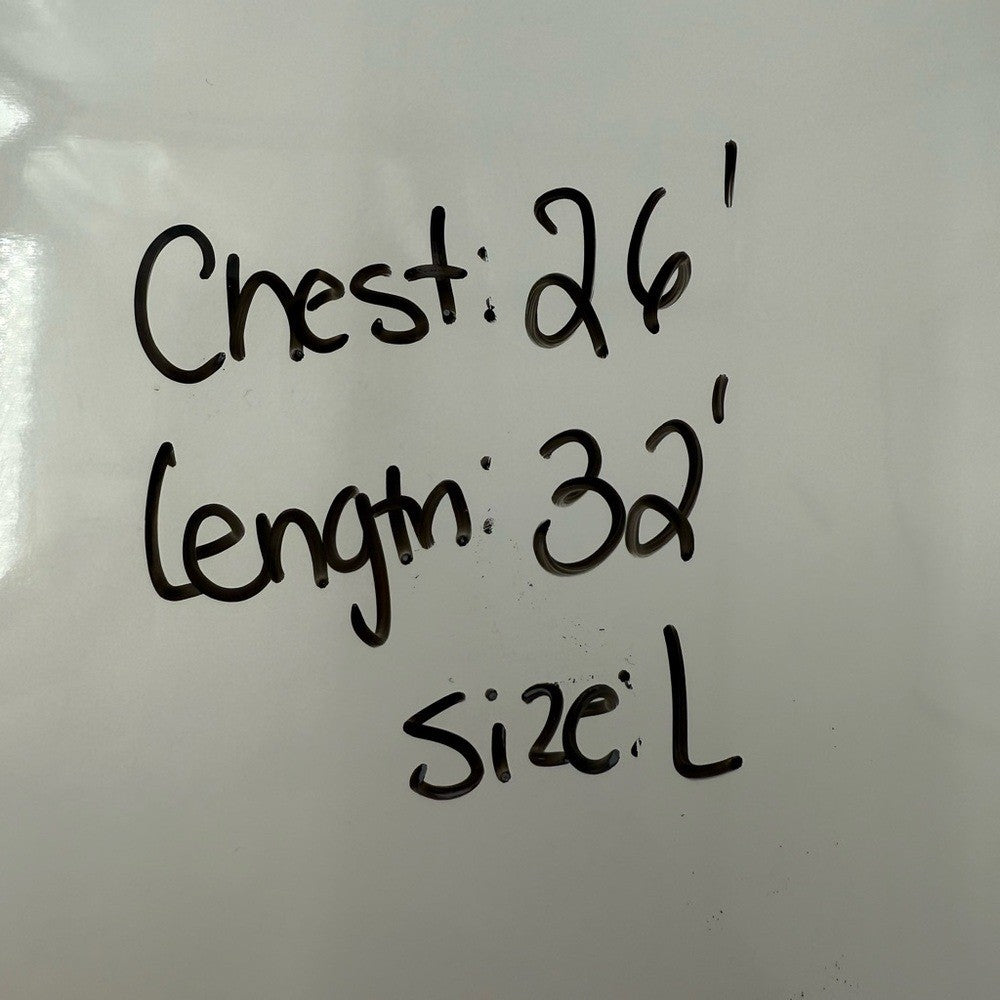 Chest: 26'
Length: 32'
Size: L